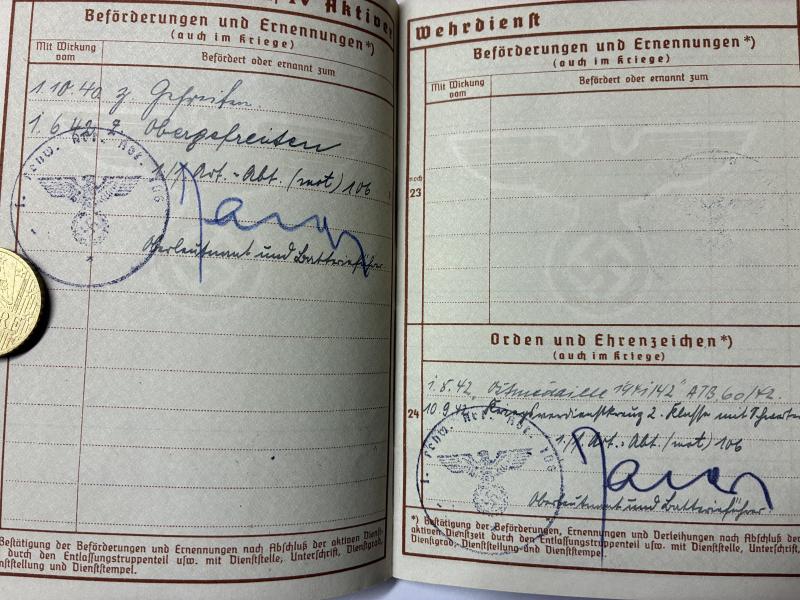 IV Aktiver
Beförderungen und Ernennungen*)
(auch im Kriege)
Mit Wirkung vom
Befördert oder ernannt zum
1.10.40 z. Gefreiten.
1.6.42 z. Obergefreiten
1./ Art.-Abt. (mot) 106
Oberleutnant und Batterieführer
Bestätigung der Beförderungen und Ernennungen nach Abschluß der aktiven Dienst-
durch den Entlassungstruppenteil usw. mit Dienststelle, Unterschrift, Dienstgrad,
Dienststellung und Dienststempel.
Wehrdienst
Beförderungen und Ernennungen*)
(auch im Kriege)
Mit Wirkung vom
Befördert oder ernannt zum
noch
23
Orden und Ehrenzeichen*)
(auch im Kriege)
24
1.8.42 "Ostmedaille 1941/42" ATB 60/42.
10.9.42 Kriegsverdienstkreuz 2. Klasse mit Schwertern
1./ Art.-Abt. (mot) 106
Oberleutnant und Batterieführer
*) Bestätigung der Beförderungen, Ernennungen und Verleihungen nach Abschluß der
aktiven Dienstzeit durch den Entlassungstruppenteil usw. mit Dienststelle, Unterschrift,
Dienstgrad, Dienststellung und Dienststempel.